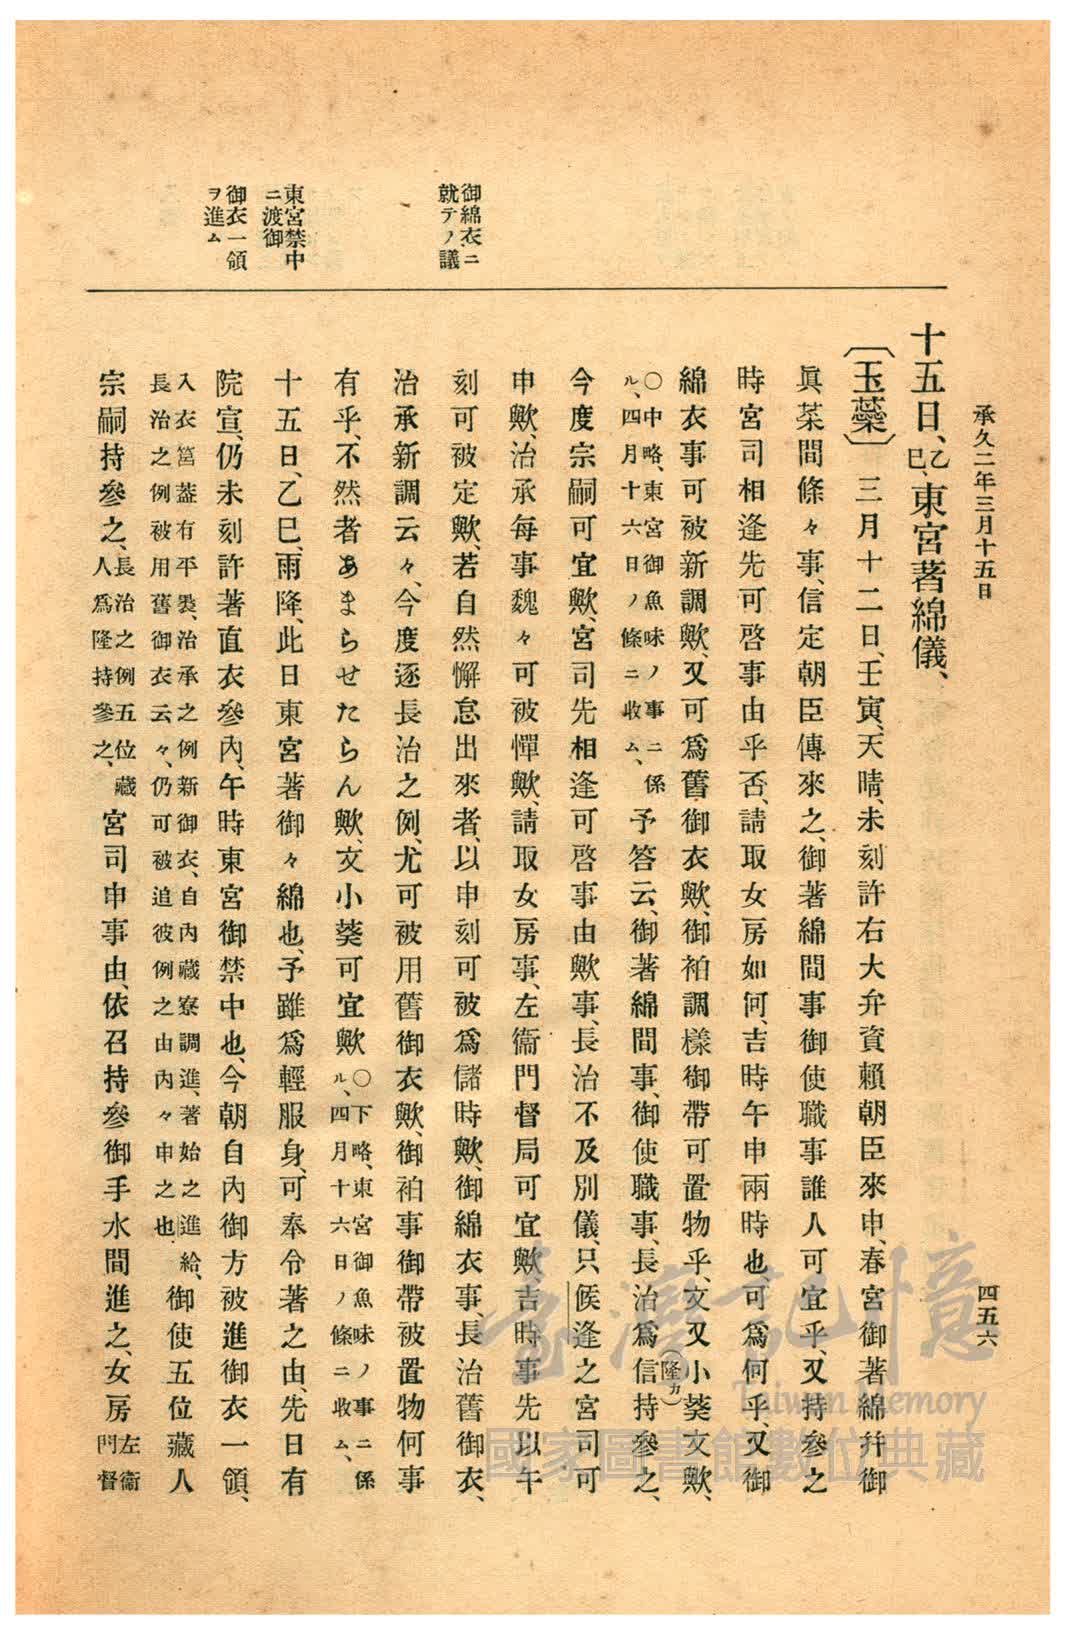 承久二年三月十五日
四五六
御綿衣ニ
就テノ議
東宮禁中
ニ渡御
御衣一領
ヲ進ム
十五日、乙巳、東宮著綿儀、
〔玉蘂〕 三月十二日、壬寅、天晴、未刻許右大弁資賴朝臣來申、春宮御著綿幷御
眞菜間條々事、信定朝臣傳來之、御著綿間事御使職事誰人可宜乎、又持參之
時宮司相逢先可啓事由乎否、請取女房如何、吉時午申兩時也、可爲何乎、又御
綿衣事可被新調歟、又可爲舊御衣歟、御袙調樣御帶可置物乎、文又小葵文歟、
〇中略、東宮御魚味ノ事ニ係
ル、四月十六日ノ條ニ收ム、
予答云、御著綿間事、御使職事、長治爲信(隆カ)持參之、
今度宗嗣可宜歟、宮司先相逢可啓事由歟事、長治不及別儀、只候逢之宮司可
申歟、治承每事魏々可被憚歟、請取女房事、左衞門督局可宜歟、吉時事先以午
刻可被定歟、若自然懈怠出來者、以申刻可被爲儲時歟、御綿衣事、長治舊御衣、
治承新調云々、今度逐長治之例、尤可被用舊御衣歟、御袙事御帶被置物何事
有乎、不然者あまらせたらん歟、文小葵可宜歟
〇下略、東宮御魚味ノ事ニ係
ル、四月十六日ノ條ニ收ム、
十五日、乙巳、雨降、此日東宮著御々綿也、予雖爲輕服身、可奉令著之由、先日有
院宣、仍未刻許著直衣參內、午時東宮御禁中也、今朝自內御方被進御衣一領、
入衣筥蓋有平裹、治承之例新御衣、自內藏寮調進、著始之進給、
長治之例被用舊御衣云々、仍可被追彼例之由內々申之也、
御使五位藏人
宗嗣持參之、
長治之例五位藏
人爲隆持參之、
宮司申事由、依召持參御手水間進之、女房
左衞
門督
臺灣記憶
Taiwan Memory
國家圖書館數位典藏